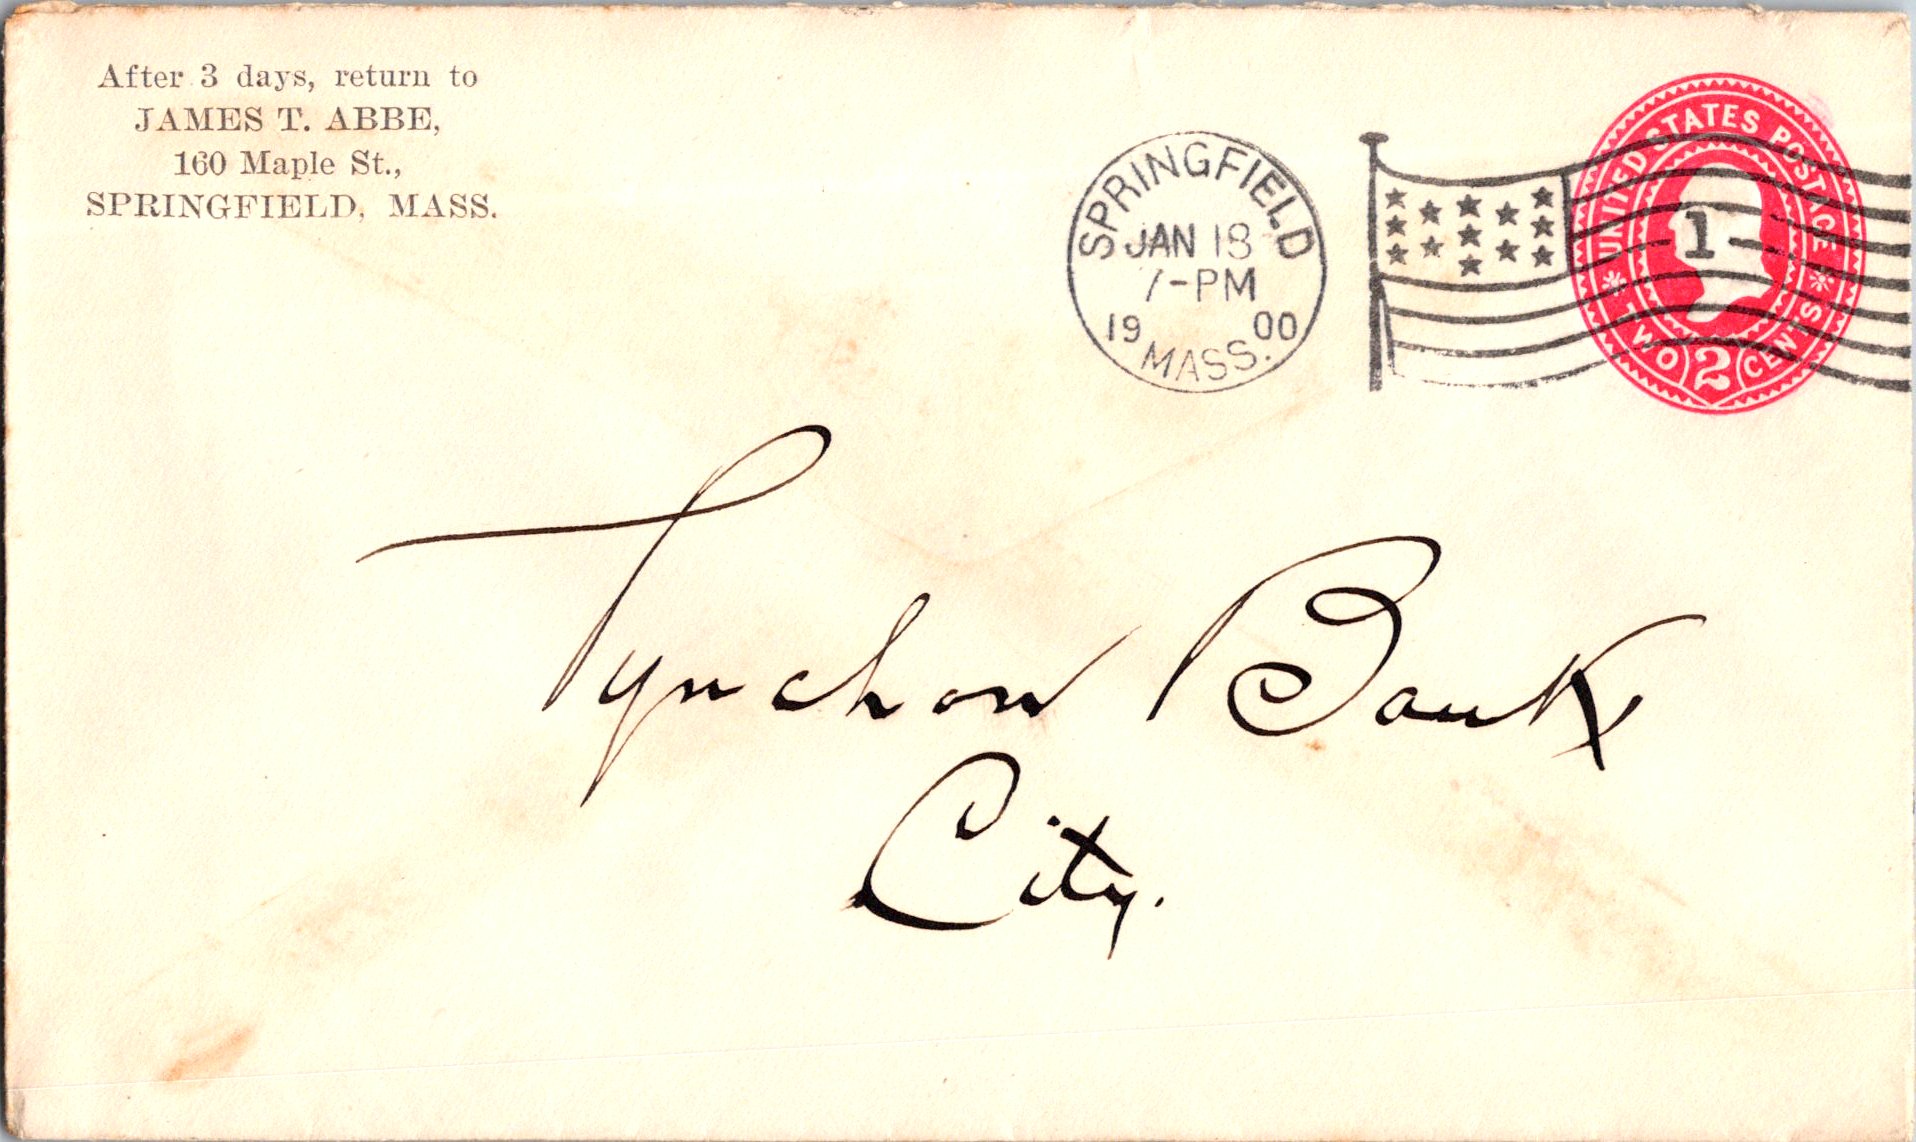 After 3 days, return to
JAMES T. ABBE,
160 Maple St.,
SPRINGFIELD, MASS.
SPRINGFIELD
JAN 18
7-PM
19 00
MASS.
UNITED STATES POSTAGE
1
TWO 2 CENTS
Pynchon Bank
City.